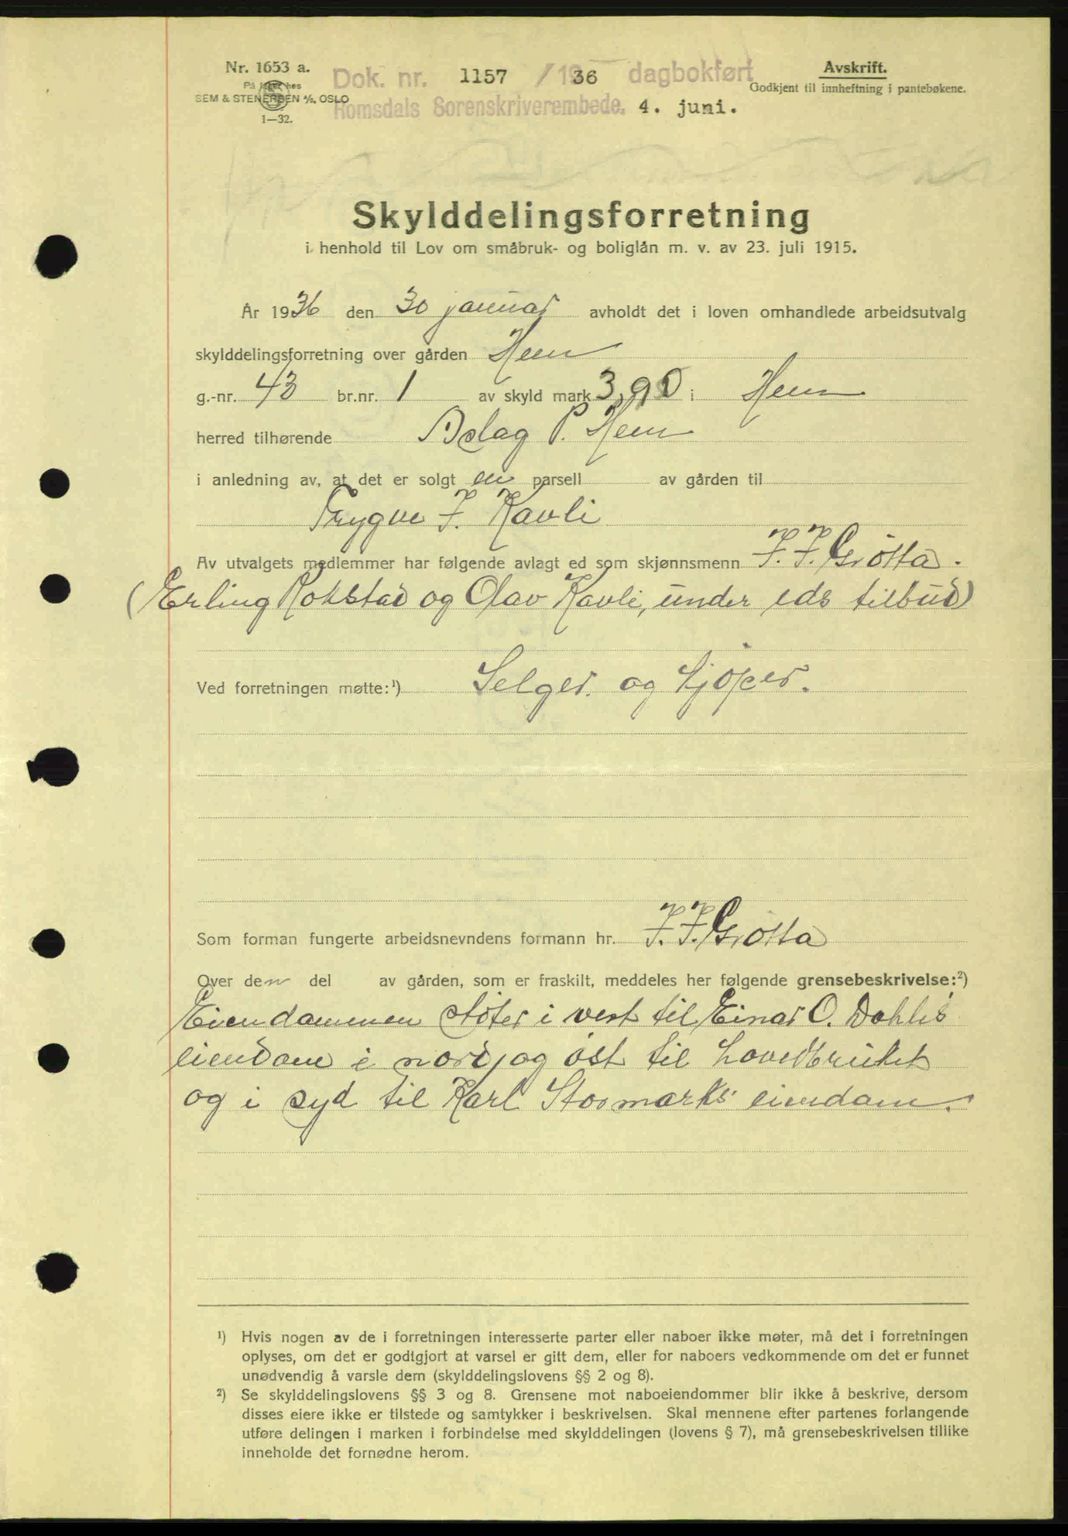 Nr. 1653 a.
På lager hos
SEM & STENERSEN A/S, OSLO
1—32.
Dok. nr. 1157 /19 36 dagbokført
Romsdals Sorenskriverembede. 4. juni.
Avskrift.
Godkjent til innheftning i pantebøkene.
Skylddelingsforretning
i henhold til Lov om småbruk- og boliglån m. v. av 23. juli 1915.
År 1936 den 30 januar avholdt det i loven omhandlede arbeidsutvalg
skylddelingsforretning over gården Hem
g.-nr. 43 br.nr. 1 av skyld mark 3,90 i Hem
herred tilhørende Aslag P. Hem
i anledning av, at det er solgt en parsell av gården til
Trygve J. Kavli
Av utvalgets medlemmer har følgende avlagt ed som skjønnsmenn J. J. Grötta.
(Erling Rokstad og Olav Kavli, under eds tilbud)
Ved forretningen møtte:¹) Selger og kjöper.
Som forman fungerte arbeidsnevndens formann hr. J. J. Grötta
Over den del av gården, som er fraskilt, meddeles her følgende grensebeskrivelse:²)
Eiendommen stöter i vest til Einar O. Dahls
eiendom i nord og öst til hovedbruket
og i syd til Karl Stormarks eiendom.
¹) Hvis nogen av de i forretningen interesserte parter eller naboer ikke møter, må det i forretningen
oplyses, om det er godtgjort at varsel er gitt dem, eller for naboers vedkommende om det er funnet
unødvendig å varsle dem (skylddelingslovens §§ 2 og 8).
²) Se skylddelingslovens §§ 3 og 8. Grensene mot naboeiendommer blir ikke å beskrive, dersom
disses eiere ikke er tilstede og samtykker i beskrivelsen. Skal mennene efter partenes forlangende
utføre delingen i marken i forbindelse med skylddelingen (lovens § 7), må grensebeskrivelsen tillike
inneholde det fornødne herom.